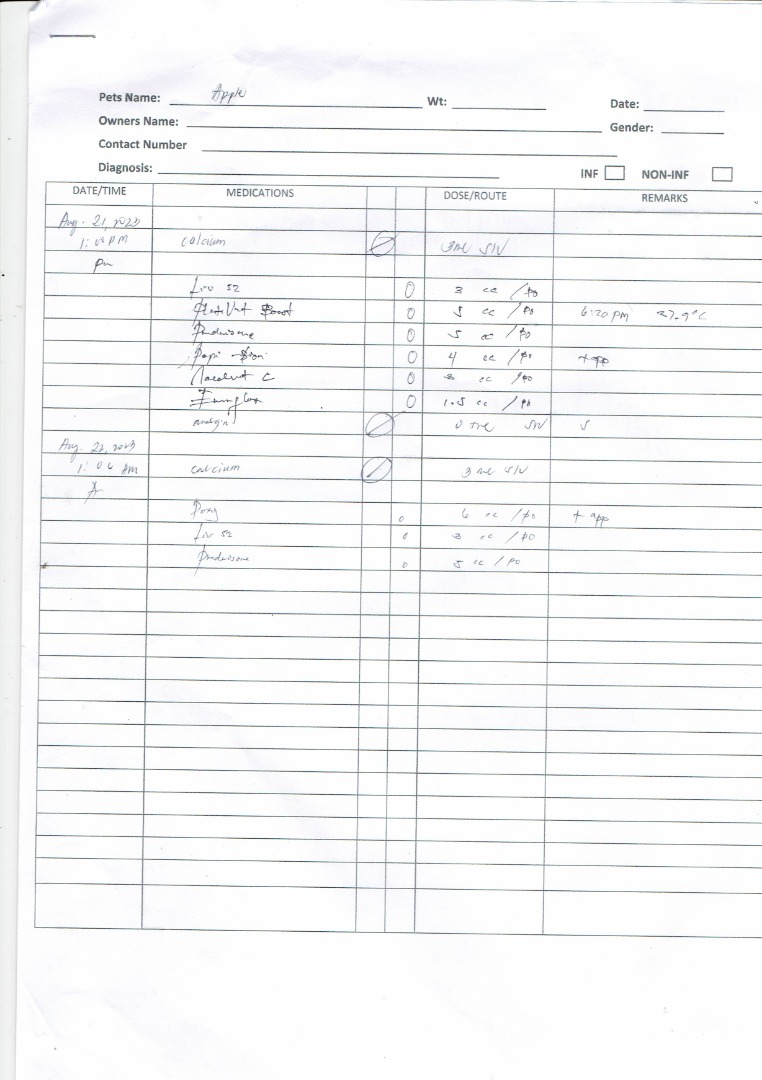 Pets Name: Apple Wt: Date:
Owners Name: Gender:
Contact Number
Diagnosis: INF NON-INF
DATE/TIME MEDICATIONS DOSE/ROUTE REMARKS
Aug. 21, 2023
1:00 PM calcium 3ml SIV
pm
Liv 52 0 3 cc /po
Boost 0 5 cc /po 6:20 pm 37.9°C
Prednisone 0 5 cc /po
Papi 0 4 cc /po + app
C 0 3 cc /po
0 1.5 cc /po
analgin SIV S
Aug. 22, 2023
1:00 AM calcium 3 ml SIV
A
Doxy 0 6 cc /po + app
Liv 52 0 3 cc /po
Prednisone 0 5 cc /po